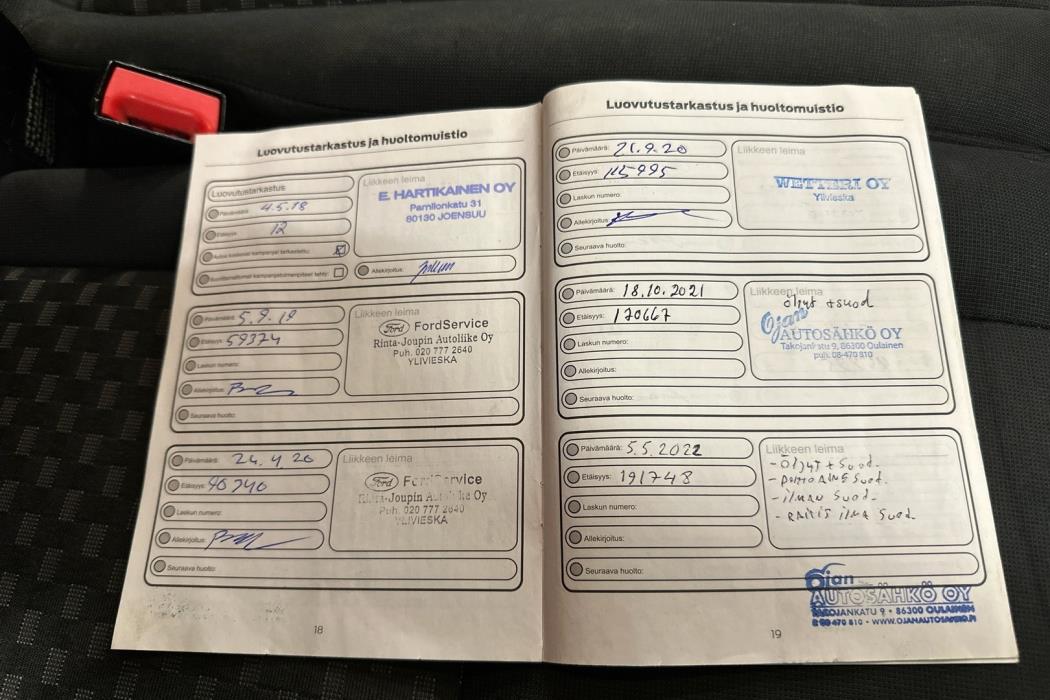 Luovutustarkastus ja huoltomuistio
Luovutustarkastus
Päivämäärä: 4.5.18
Etäisyys: 12
Allekirjoitus:
Liikkeen leima
E. HARTIKAINEN OY
Pamilonkatu 31
80130 JOENSUU
Päivämäärä: 5.9.19
Etäisyys: 59374
Laskun numero:
Allekirjoitus:
Seuraava huolto:
Liikkeen leima
Ford FordService
Rinta-Joupin Autoliike Oy
Puh. 020 777 2640
YLIVIESKA
Päivämäärä: 24.4.20
Etäisyys:
Laskun numero:
Allekirjoitus:
Seuraava huolto:
Liikkeen leima
Ford FordService
Rinta-Joupin Autoliike Oy
Puh. 020 777 2640
YLIVIESKA
18
Luovutustarkastus ja huoltomuistio
Päivämäärä: 21.9.20
Etäisyys: 115995
Laskun numero:
Allekirjoitus:
Seuraava huolto:
Liikkeen leima
WETTERI OY
Ylivieska
Päivämäärä: 18.10.2021
Etäisyys: 170667
Laskun numero:
Allekirjoitus:
Seuraava huolto:
Liikkeen leima
öljyt + suod
Ojan
AUTOSÄHKÖ OY
Takojankatu 9, 86300 Oulainen
puh. 08-470 810
Päivämäärä: 5.5.2022
Etäisyys: 191748
Laskun numero:
Allekirjoitus:
Seuraava huolto:
Liikkeen leima
- Öljyt + Suod.
- POLTTOAINE Suod.
- ilman Suod.
- RAITIS ilMA Suod.
Ojan
AUTOSÄHKÖ OY
TAKOJANKATU 9 • 86300 OULAINEN
08 470 810 • WWW.OJANAUTOSAHKO.FI
19